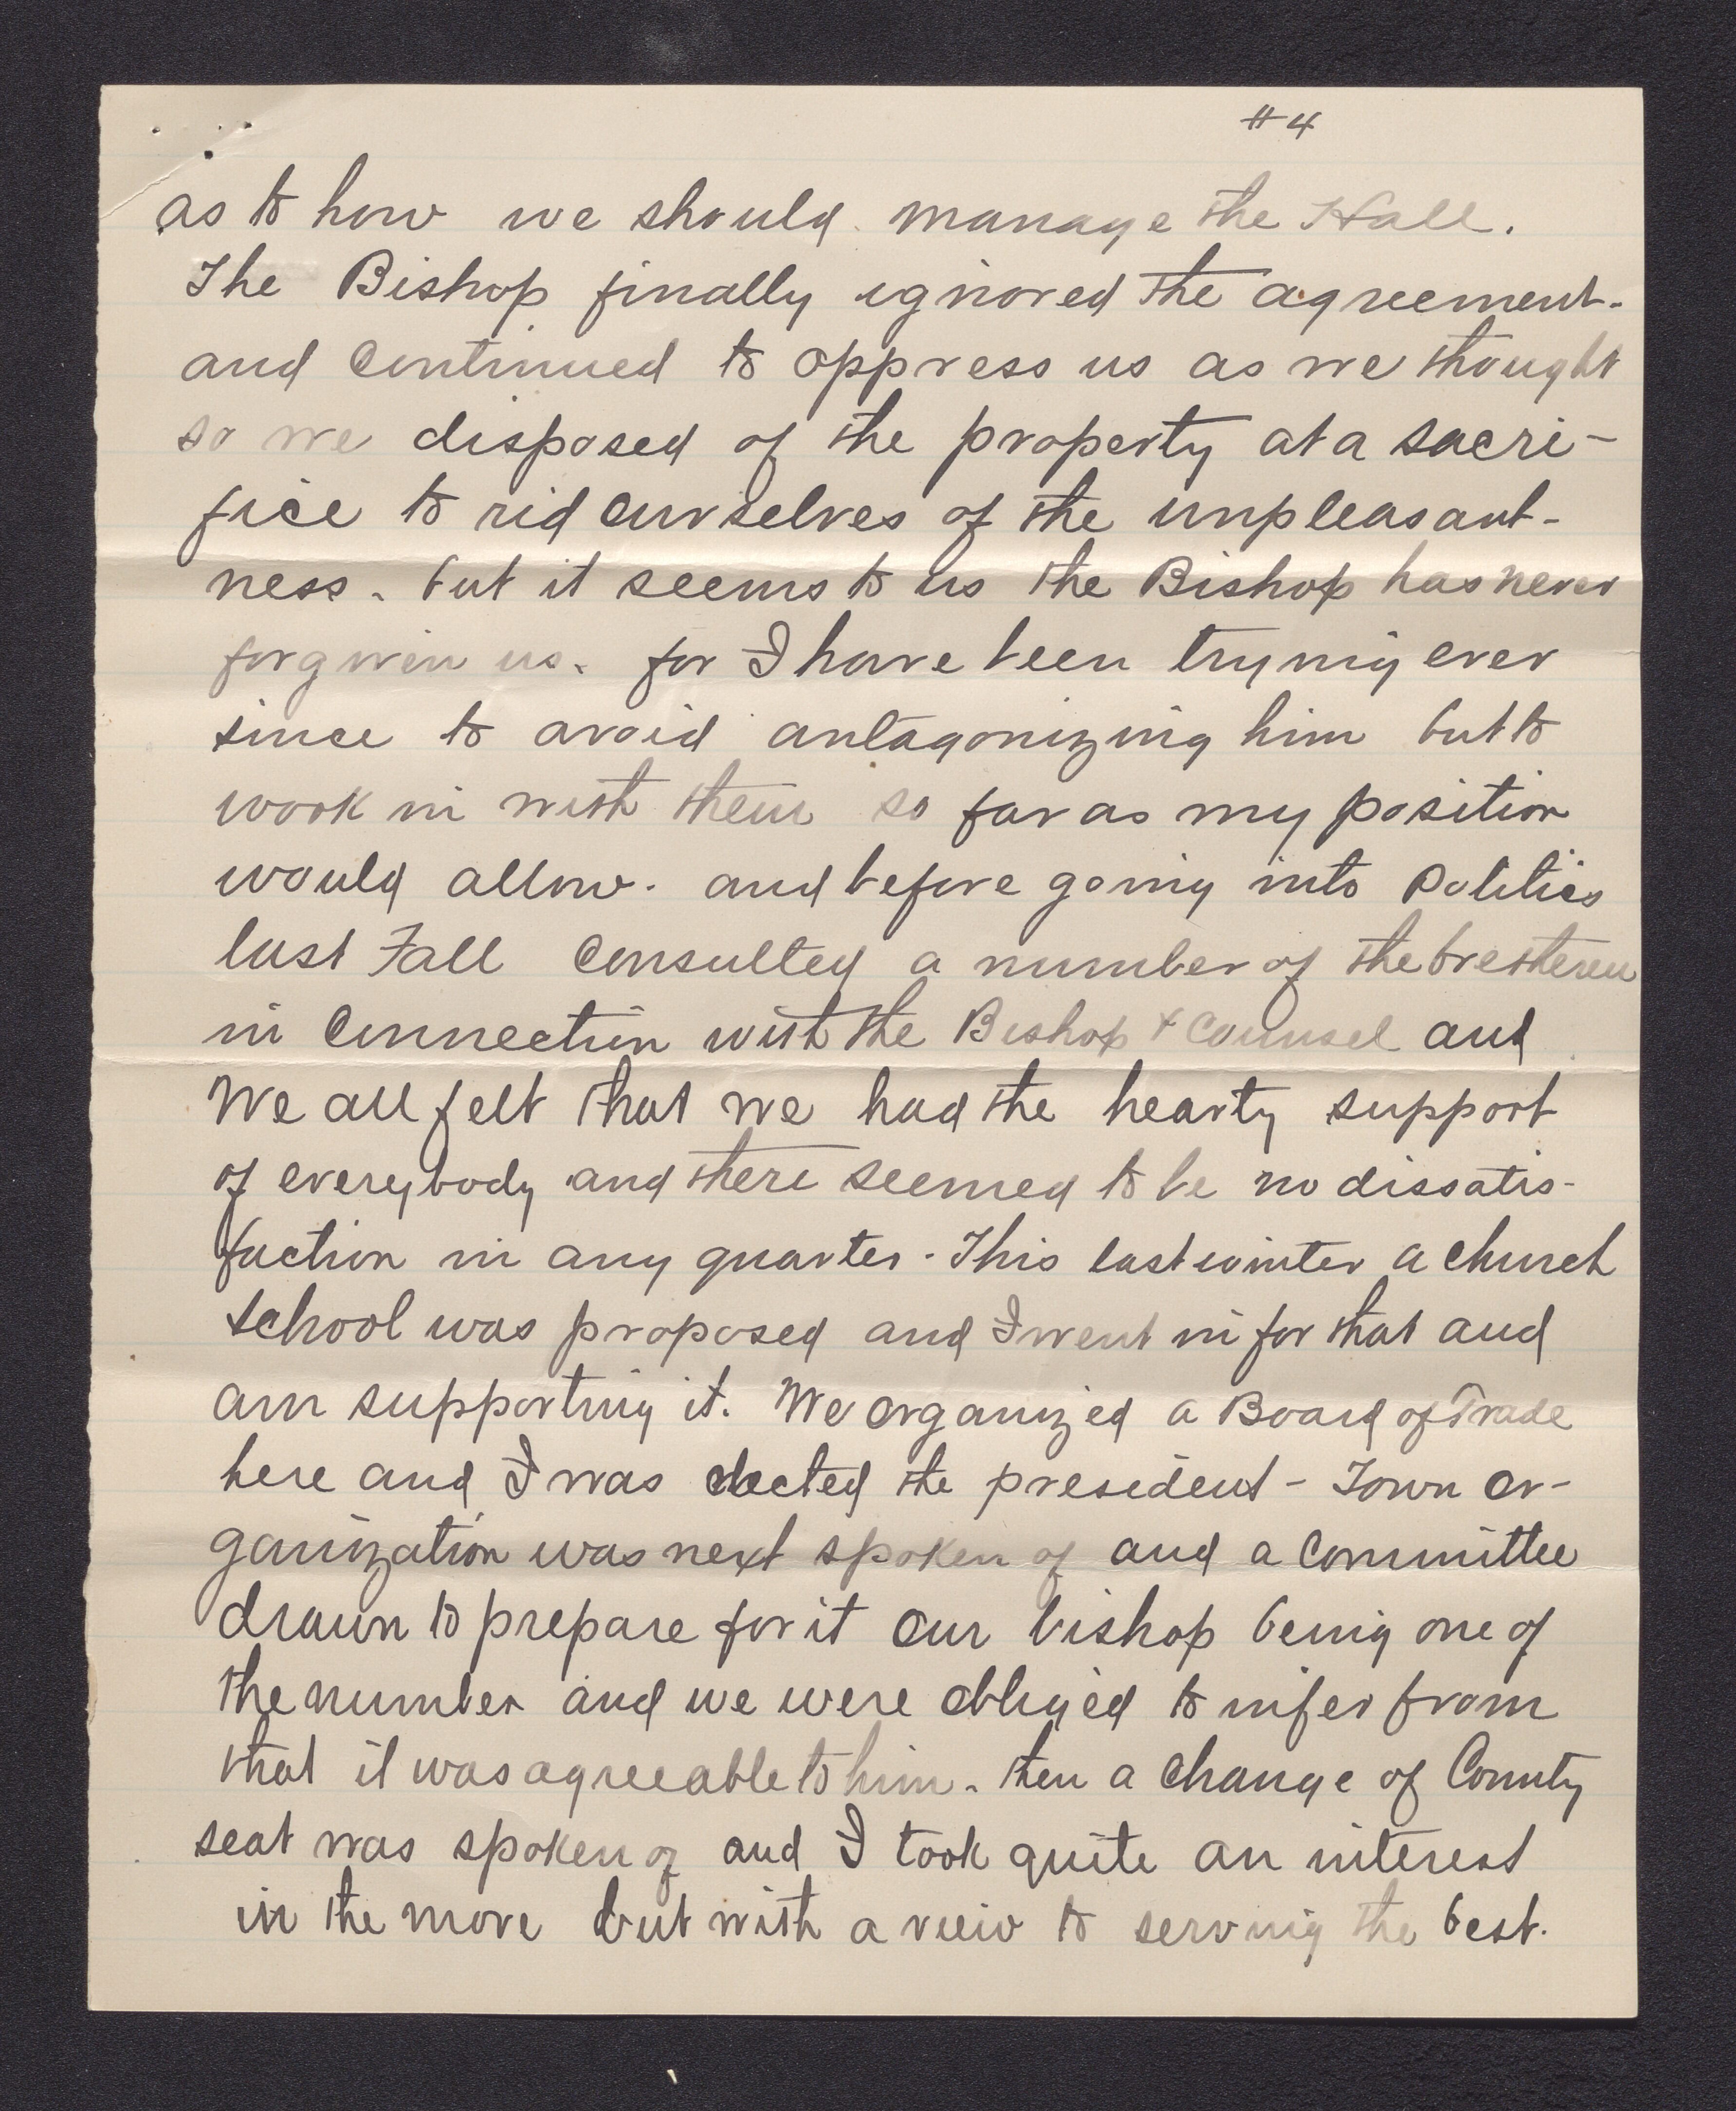 #4
as to how we should manage the Hall.
The Bishop finally ignored the agreement-
and continued to oppress us as we thought
so we disposed of the property at a sacri-
fice to rid ourselves of the unpleasant-
ness. but it seems to us the Bishop has never
forgiven us. for I have been trying ever
since to avoid antagonizing him but to
work in with them so far as my position
would allow. and before going into Politics
last Fall consulted a number of the bretheren
in connection with the Bishop & Counsel and
We all felt that we had the hearty support
of everybody and there seemed to be no dissatis-
faction in any quarter. This last winter a church
school was proposed and I went in for that and
am supporting it. We organized a Board of Trade
here and I was elected the president - Town or-
ganization was next spoken of and a committee
drawn to prepare for it our bishop being one of
the number and we were obliged to infer from
that it was agreeable to him. then a change of County
seat was spoken of and I took quite an interest
in the move but with a view to serving the best.